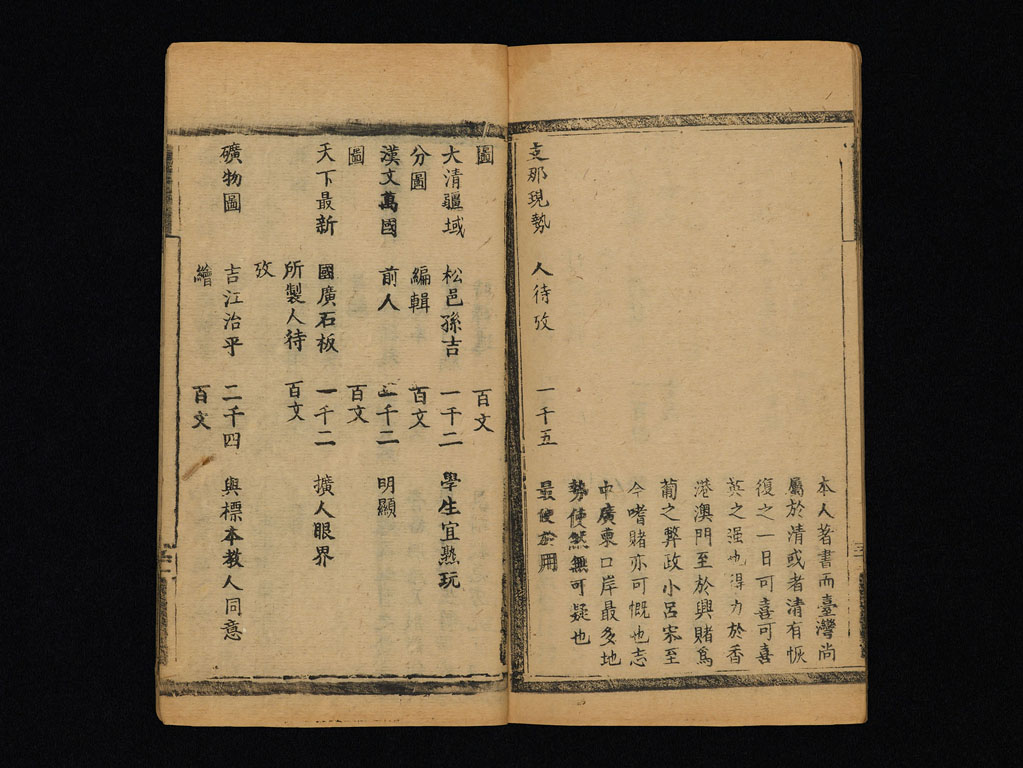 本人著書而臺灣尚
屬於清或者清有恢
復之一日可喜可喜
英之强也得力於香
港澳門至於興賭爲
葡之弊政小呂宋至
今嗜賭亦可慨也志
中廣東口岸最多地
勢使然無可疑也
支那現勢 人待攷 一千五 最便於用
圖 百文
大清疆域 松邑孫吉 一千二 學生宜熟玩
分圖 編輯 百文
漢文萬國 前人 一千二 明顯
圖 百文
天下最新 國廣石板 一千二 擴人眼界
所製人待 百文
攷
礦物圖 吉江治平 二千四 與標本教人同意
繪 百文